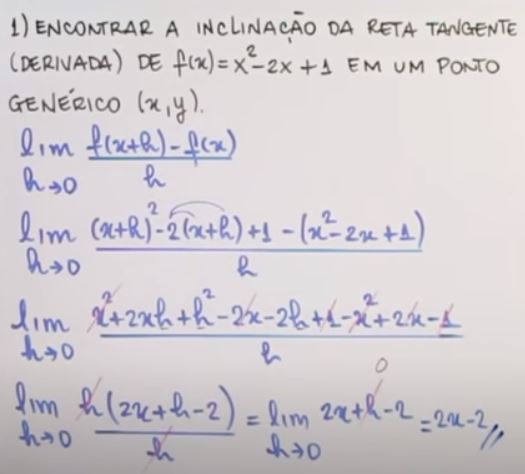 1) ENCONTRAR A INCLINAÇÃO DA RETA TANGENTE
(DERIVADA) DE f(x)=x²-2x+1 EM UM PONTO
GENÉRICO (x,y).
lim f(x+h)-f(x)
h→0 h
lim (x+h)²-2(x+h)+1-(x²-2x+1)
h→0 h
lim x²+2xh+h²-2x-2h+1-x²+2x-1
h→0 h
0
lim h(2x+h-2) = lim 2x+h-2 = 2x-2//
h→0 h h→0